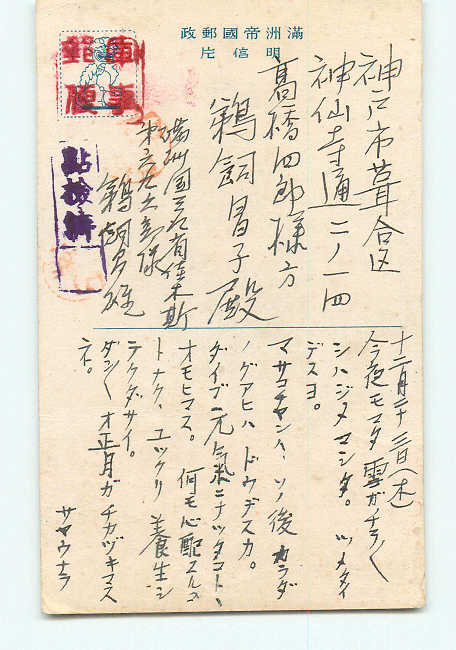 滿洲帝國郵政
明信片
軍事
郵便
點檢濟
神戸市葺合区
神仙寺通二ノ一四
髙橋四郎様方
鵜飼昌子殿
満洲国三江省佳木斯
第六九六部隊
鵜飼
十二月二十三日(木)
今夜モマタ雪ガチラ〱
シハジメマシタ。ツメタイ
デスヨ。
マサコチャンヘ、ソノ後カラダ
ノグアヒハドウデスカ。
ダイブ元気ニナツタコトヽ
オモヒマス。何モ心配スルコ
トナク、ユックリ養生シ
テクダサイ。
ダン〱オ正月ガチカヅキマス
ネ。
サヤウナラ